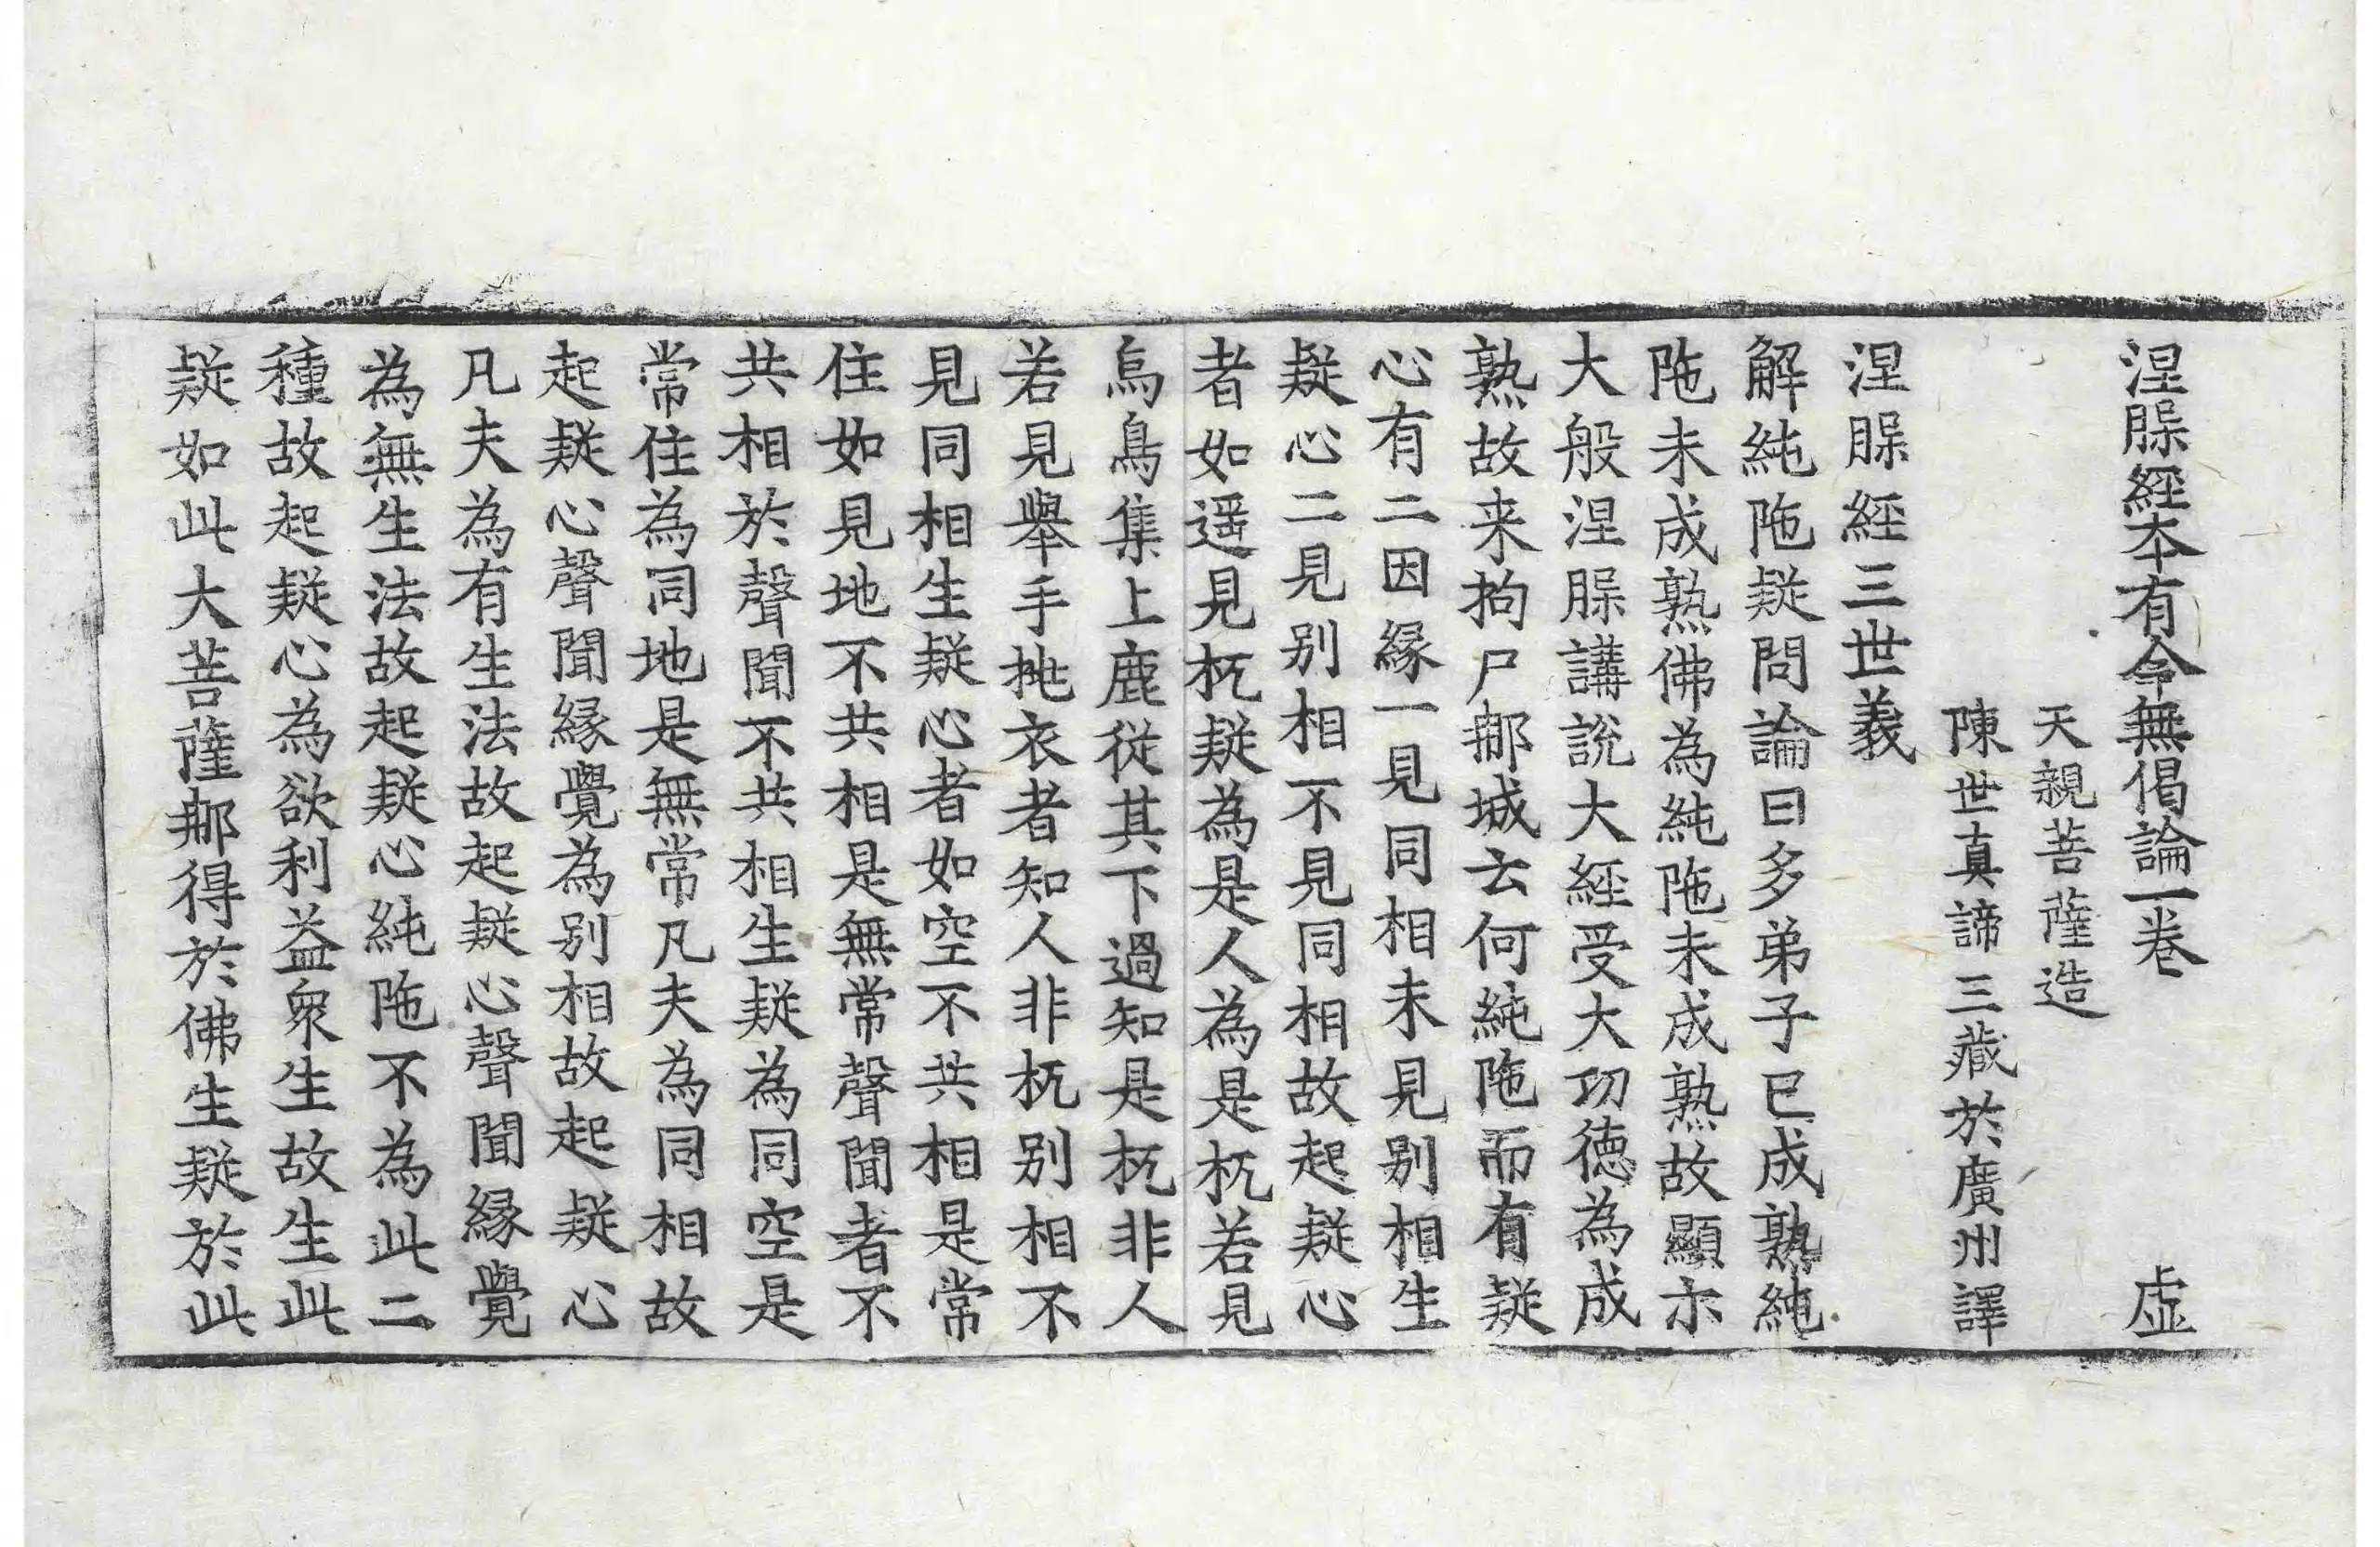 涅槃經本有今無偈論一卷 虛
天親菩薩造
陳世真諦三藏於廣州譯
涅槃經三世義
解純陁疑問論曰多弟子已成熟純
陁未成熟佛為純陁未成熟故顯示
大般涅槃講說大經受大功德為成
熟故来拘尸那城云何純陁而有疑
心有二因緣一見同相未見别相生
疑心二見别相不見同相故起疑心
者如遥見杌疑為是人為是杌若見
烏鳥集上鹿從其下過知是杌非人
若見舉手挽衣者知人非杌别相不
見同相生疑心者如空不共相是常
住如見地不共相是無常聲聞者不
共相於聲聞不共相生疑為同空是
常住為同地是無常凡夫為同相故
起疑心聲聞緣覺為别相故起疑心
凡夫為有生法故起疑心聲聞緣覺
為無生法故起疑心純陁不為此二
種故起疑心為欲利益衆生故生此
疑如此大菩薩那得於佛生疑於此